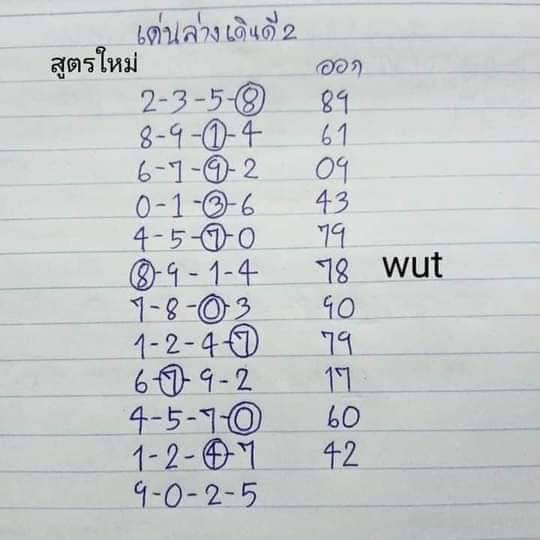 เด่นล่างเดินดี2
สูตรใหม่ ออก
2-3-5-8 89
8-9-1-4 61
6-7-9-2 09
0-1-3-6 43
4-5-7-0 79
8-9-1-4 78 wut
7-8-0-3 90
1-2-4-7 79
6-7-9-2 17
4-5-7-0 60
1-2-4-7 42
9-0-2-5